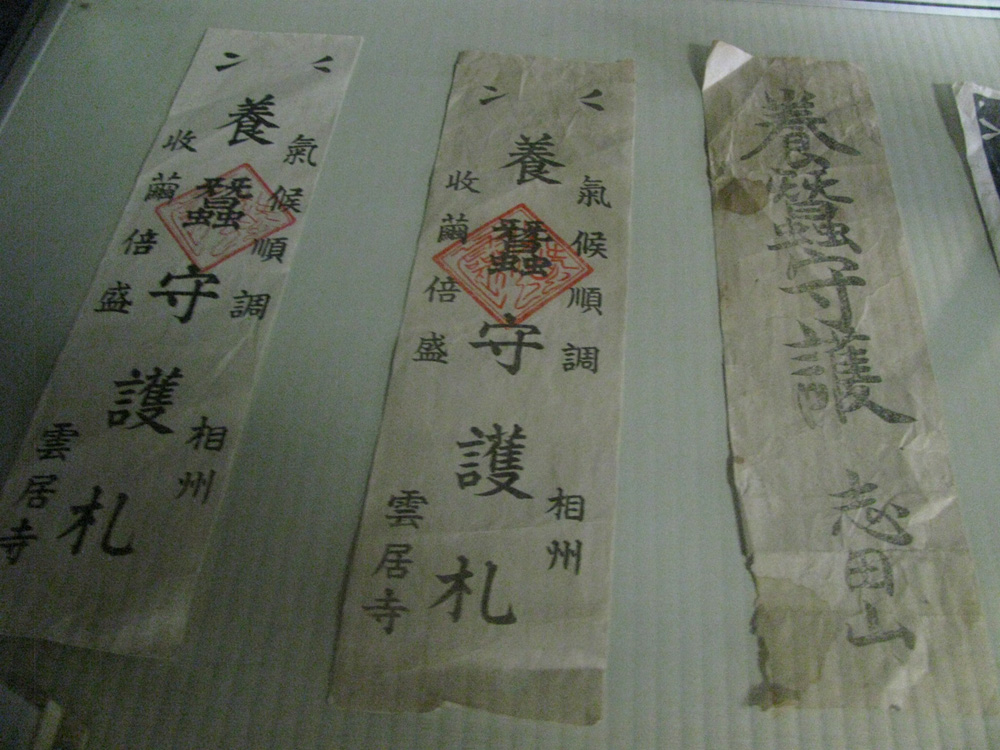 氣候順調
相州
養蠶守護札
收繭倍盛
雲居寺
氣候順調
相州
養蠶守護札
收繭倍盛
雲居寺
養蠶守護 志田山